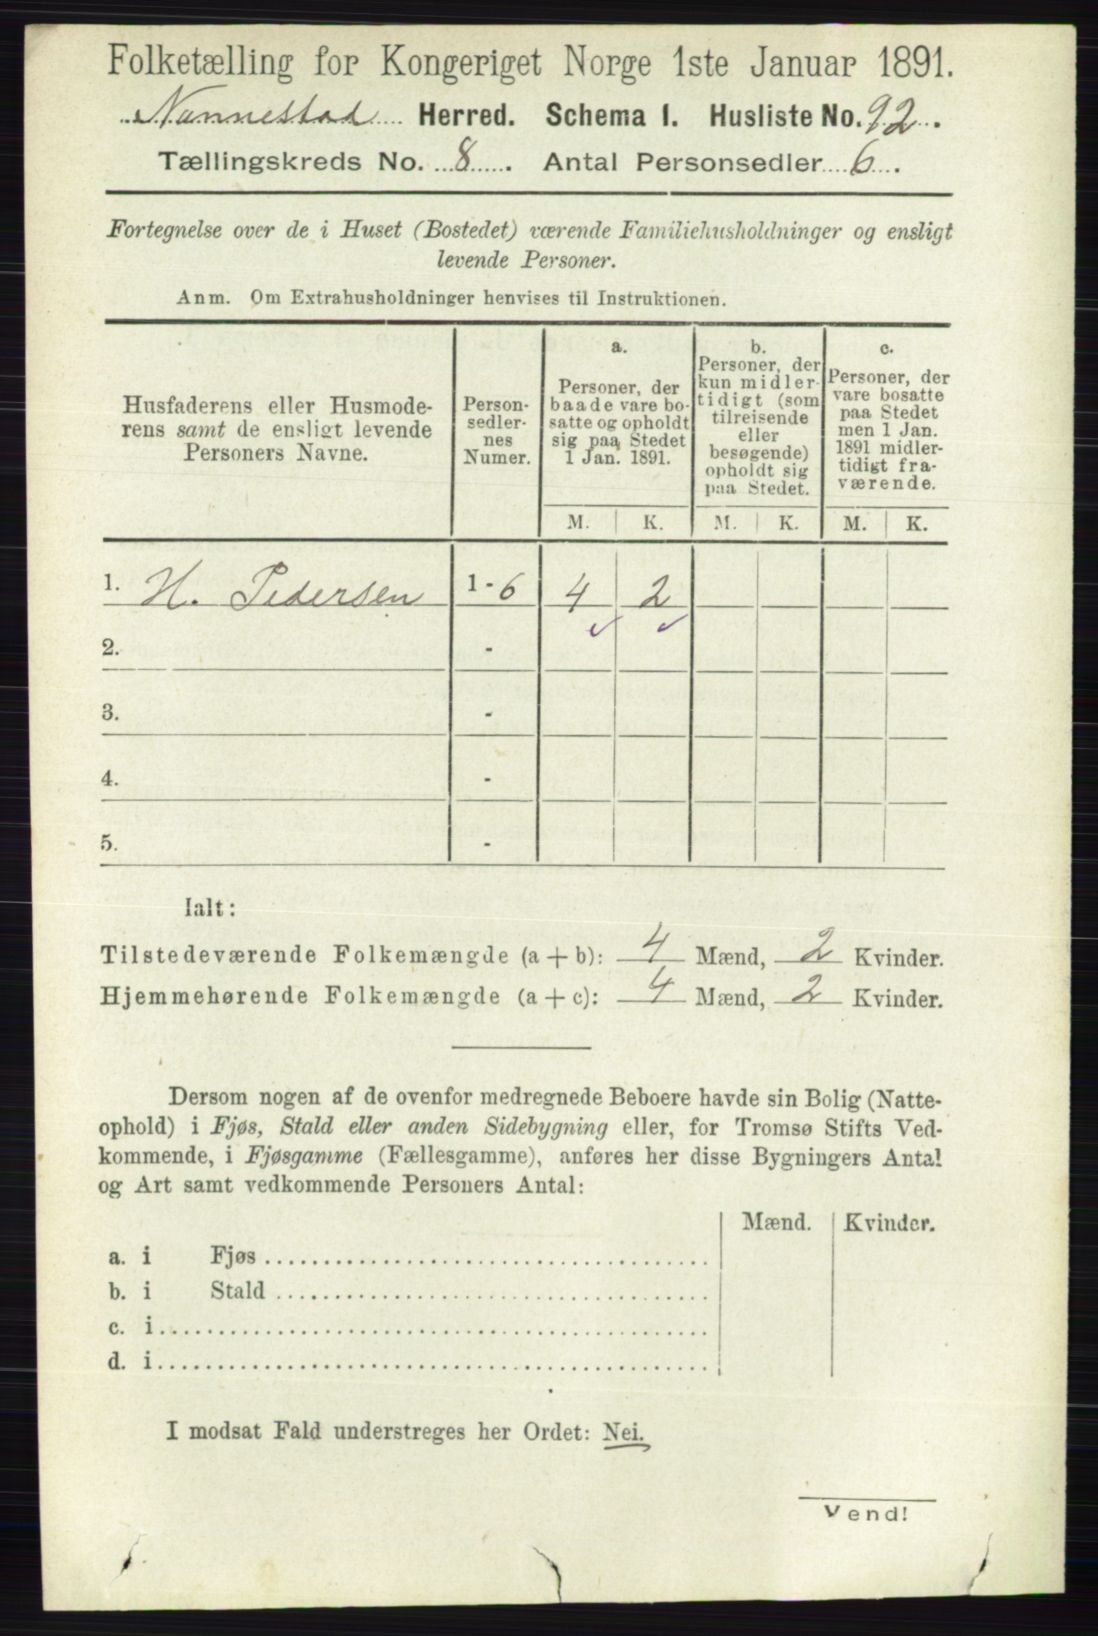 Folketælling for Kongeriget Norge 1ste Januar 1891.
Nannestad Herred. Schema I. Husliste No. 92.
Tællingskreds No. 8. Antal Personsedler 6.
Fortegnelse over de i Huset (Bostedet) værende Familiehusholdninger og ensligt
levende Personer.
Anm. Om Extrahusholdninger henvises til Instruktionen.
Husfaderens eller Husmode-
rens samt de ensligt levende
Personers Navne.
Person-
sedler-
nes
Numer.
a.
Personer, der
baade vare bo-
satte og opholdt
sig paa Stedet
1 Jan. 1891.
b.
Personer, der
kun midler-
tidigt (som
tilreisende
eller
besøgende)
opholdt sig
paa Stedet.
c.
Personer, der
vare bosatte
paa Stedet
men 1 Jan.
1891 midler-
tidigt fra-
værende.
M. K. M. K. M. K.
1. H. Pedersen 1-6 4 2
2. -
3. -
4. -
5. -
Ialt:
Tilstedeværende Folkemængde (a + b): 4 Mænd, 2 Kvinder.
Hjemmehørende Folkemængde (a + c): 4 Mænd, 2 Kvinder.
Dersom nogen af de ovenfor medregnede Beboere havde sin Bolig (Natte-
ophold) i Fjøs, Stald eller anden Sidebygning eller, for Tromsø Stifts Ved-
kommende, i Fjøsgamme (Fællesgamme), anføres her disse Bygningers Antal
og Art samt vedkommende Personers Antal:
Mænd. Kvinder.
a. i Fjøs
b. i Stald
c. i
d. i
I modsat Fald understreges her Ordet: Nei.
Vend!